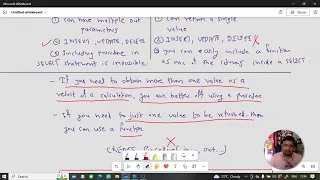 Microsoft Whiteboard
Untitled whiteboard
① can have multiple out parameters
② INSERT, UPDATE, DELETE
③ Including procedure in SELECT statement is impossible
① Can return a single value
② INSERT, UPDATE, DELETE
③ you can easily include a function as one of the columns inside a SELECT.
- If you need to obtain more than one value as a
result of a calculation, you are better off using a procedure
- If you need to just one value to be returned, then
you can use a function
(CREATE
out